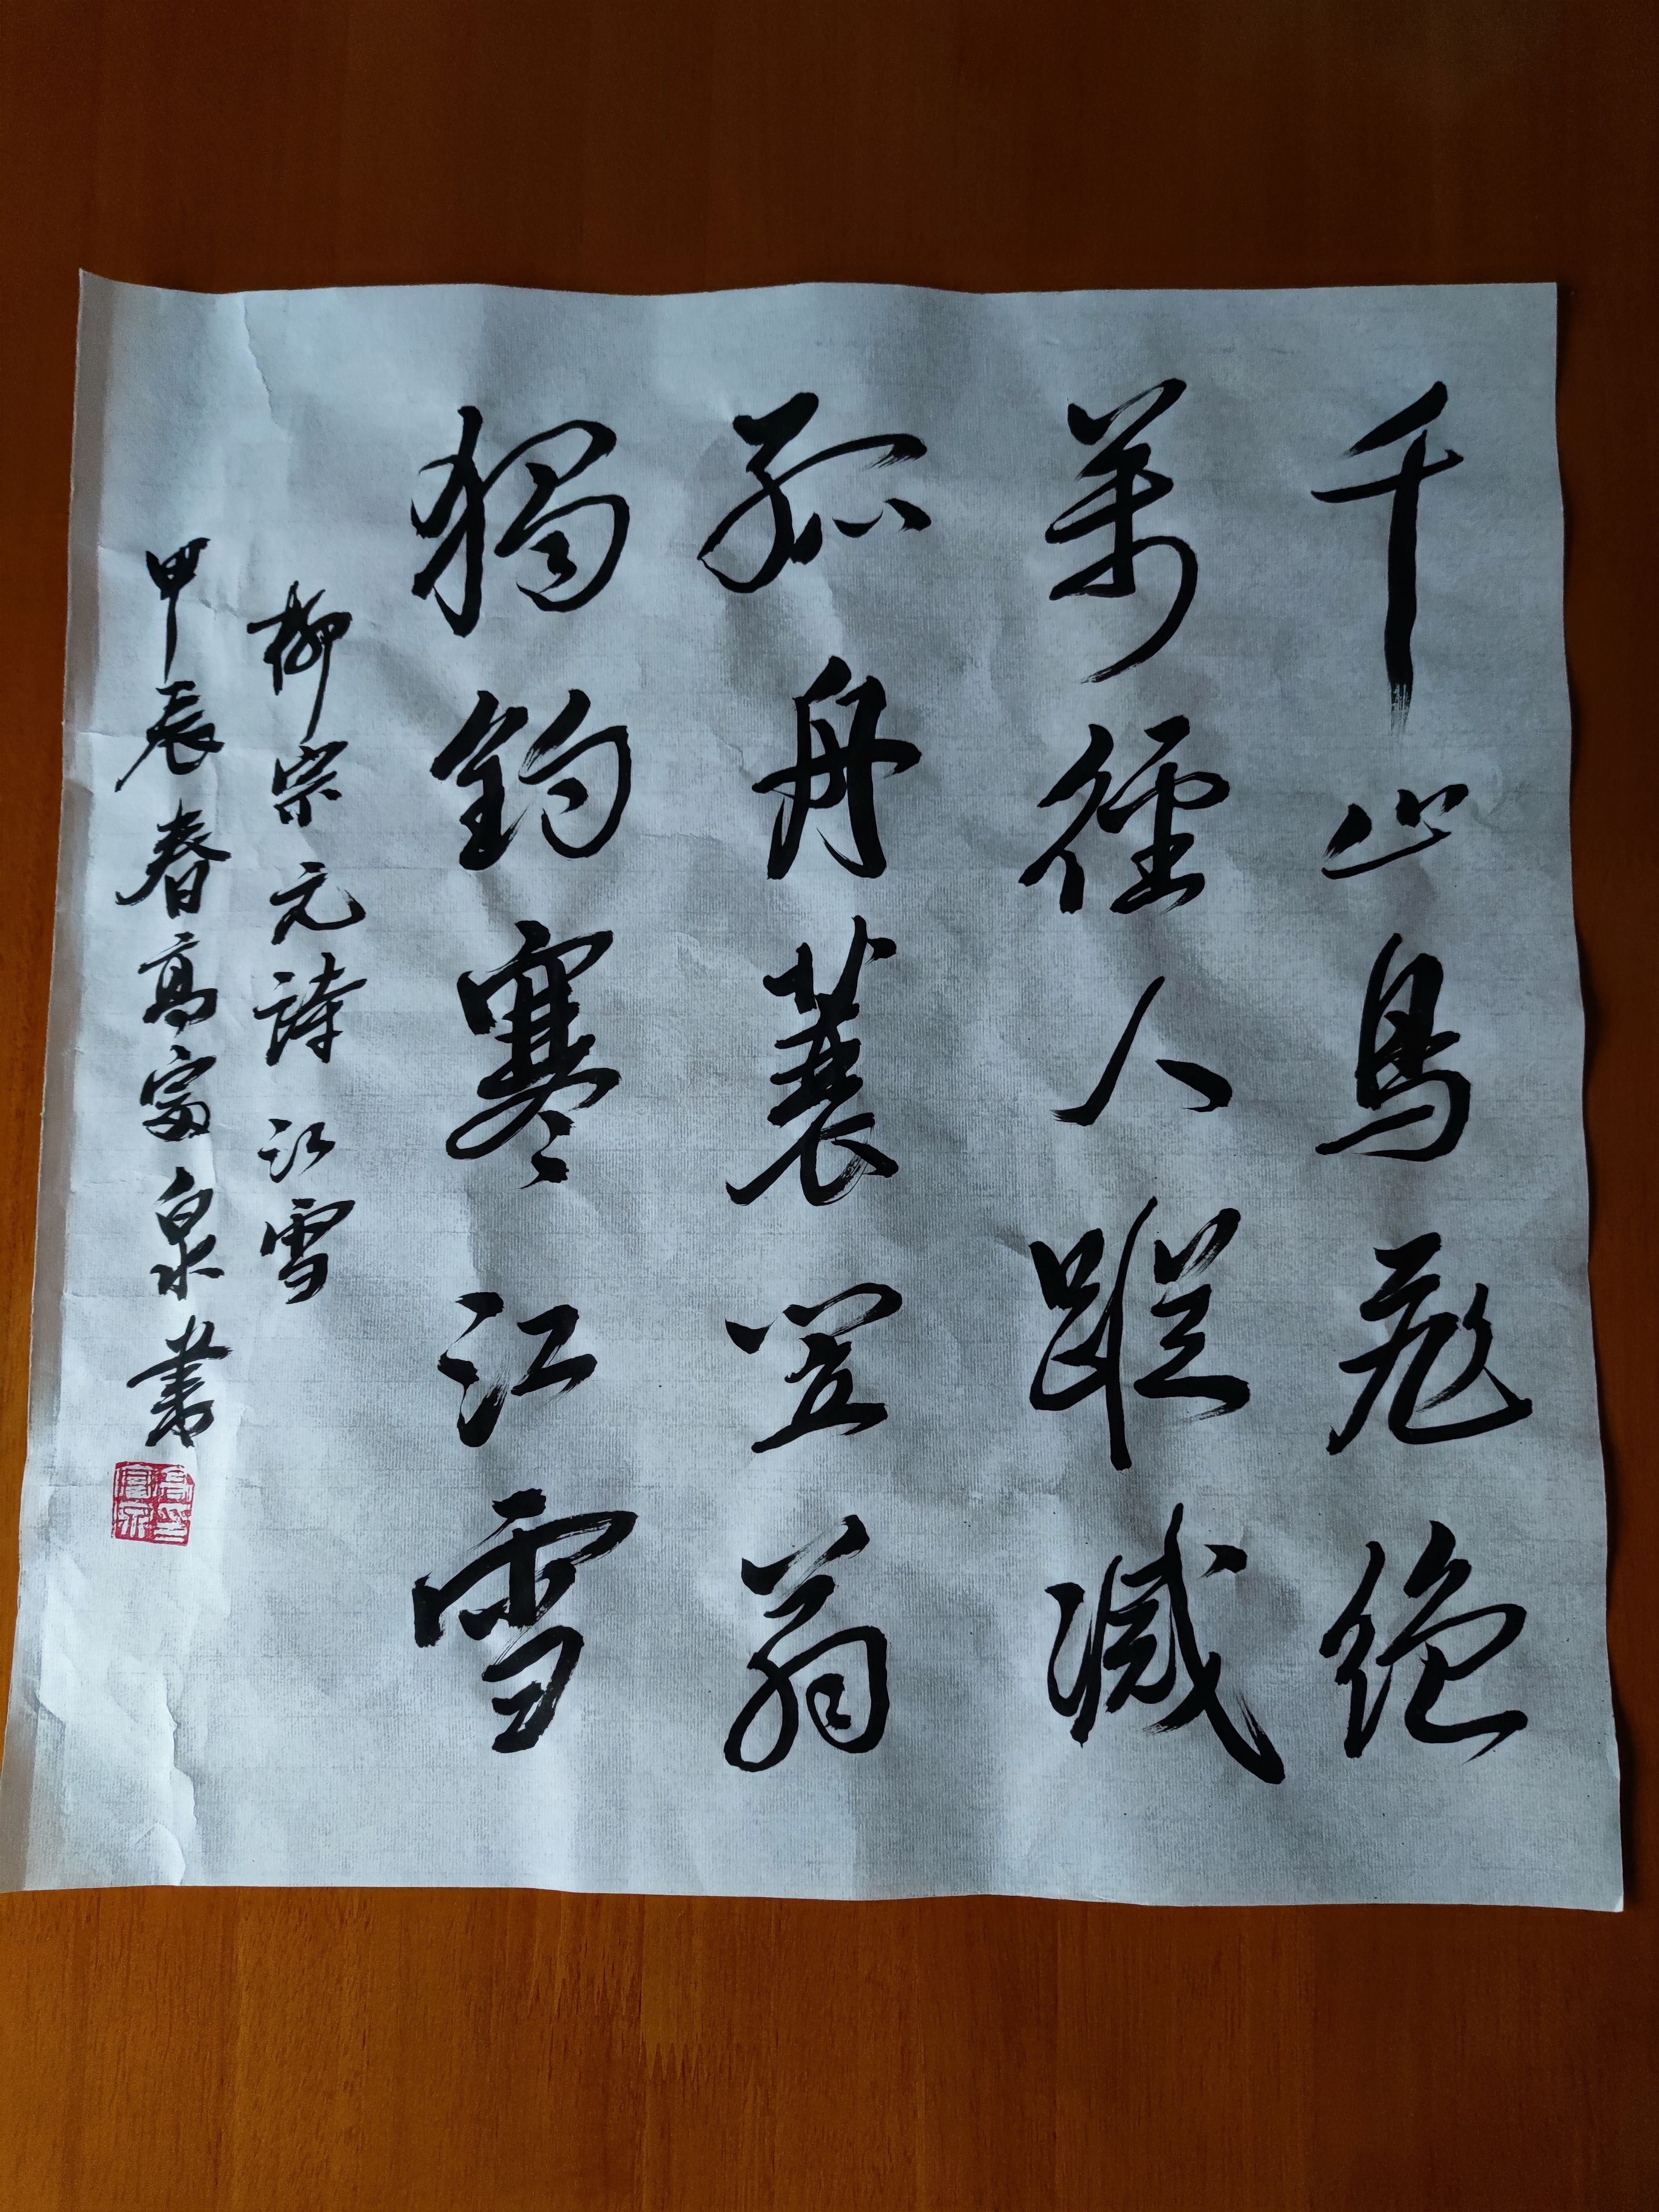 千山鳥飛絕
萬徑人蹤滅
孤舟蓑笠翁
獨釣寒江雪
柳宗元詩 江雪
甲辰春高富泉書
高印富泉